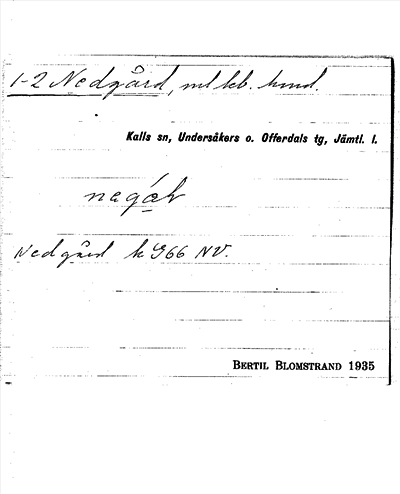 1-2 Nedgård,
Kalls sn, Undersåkers o. Offerdals tg, Jämtl. l.
Nedgård k 966 NV.
BERTIL BLOMSTRAND 1935